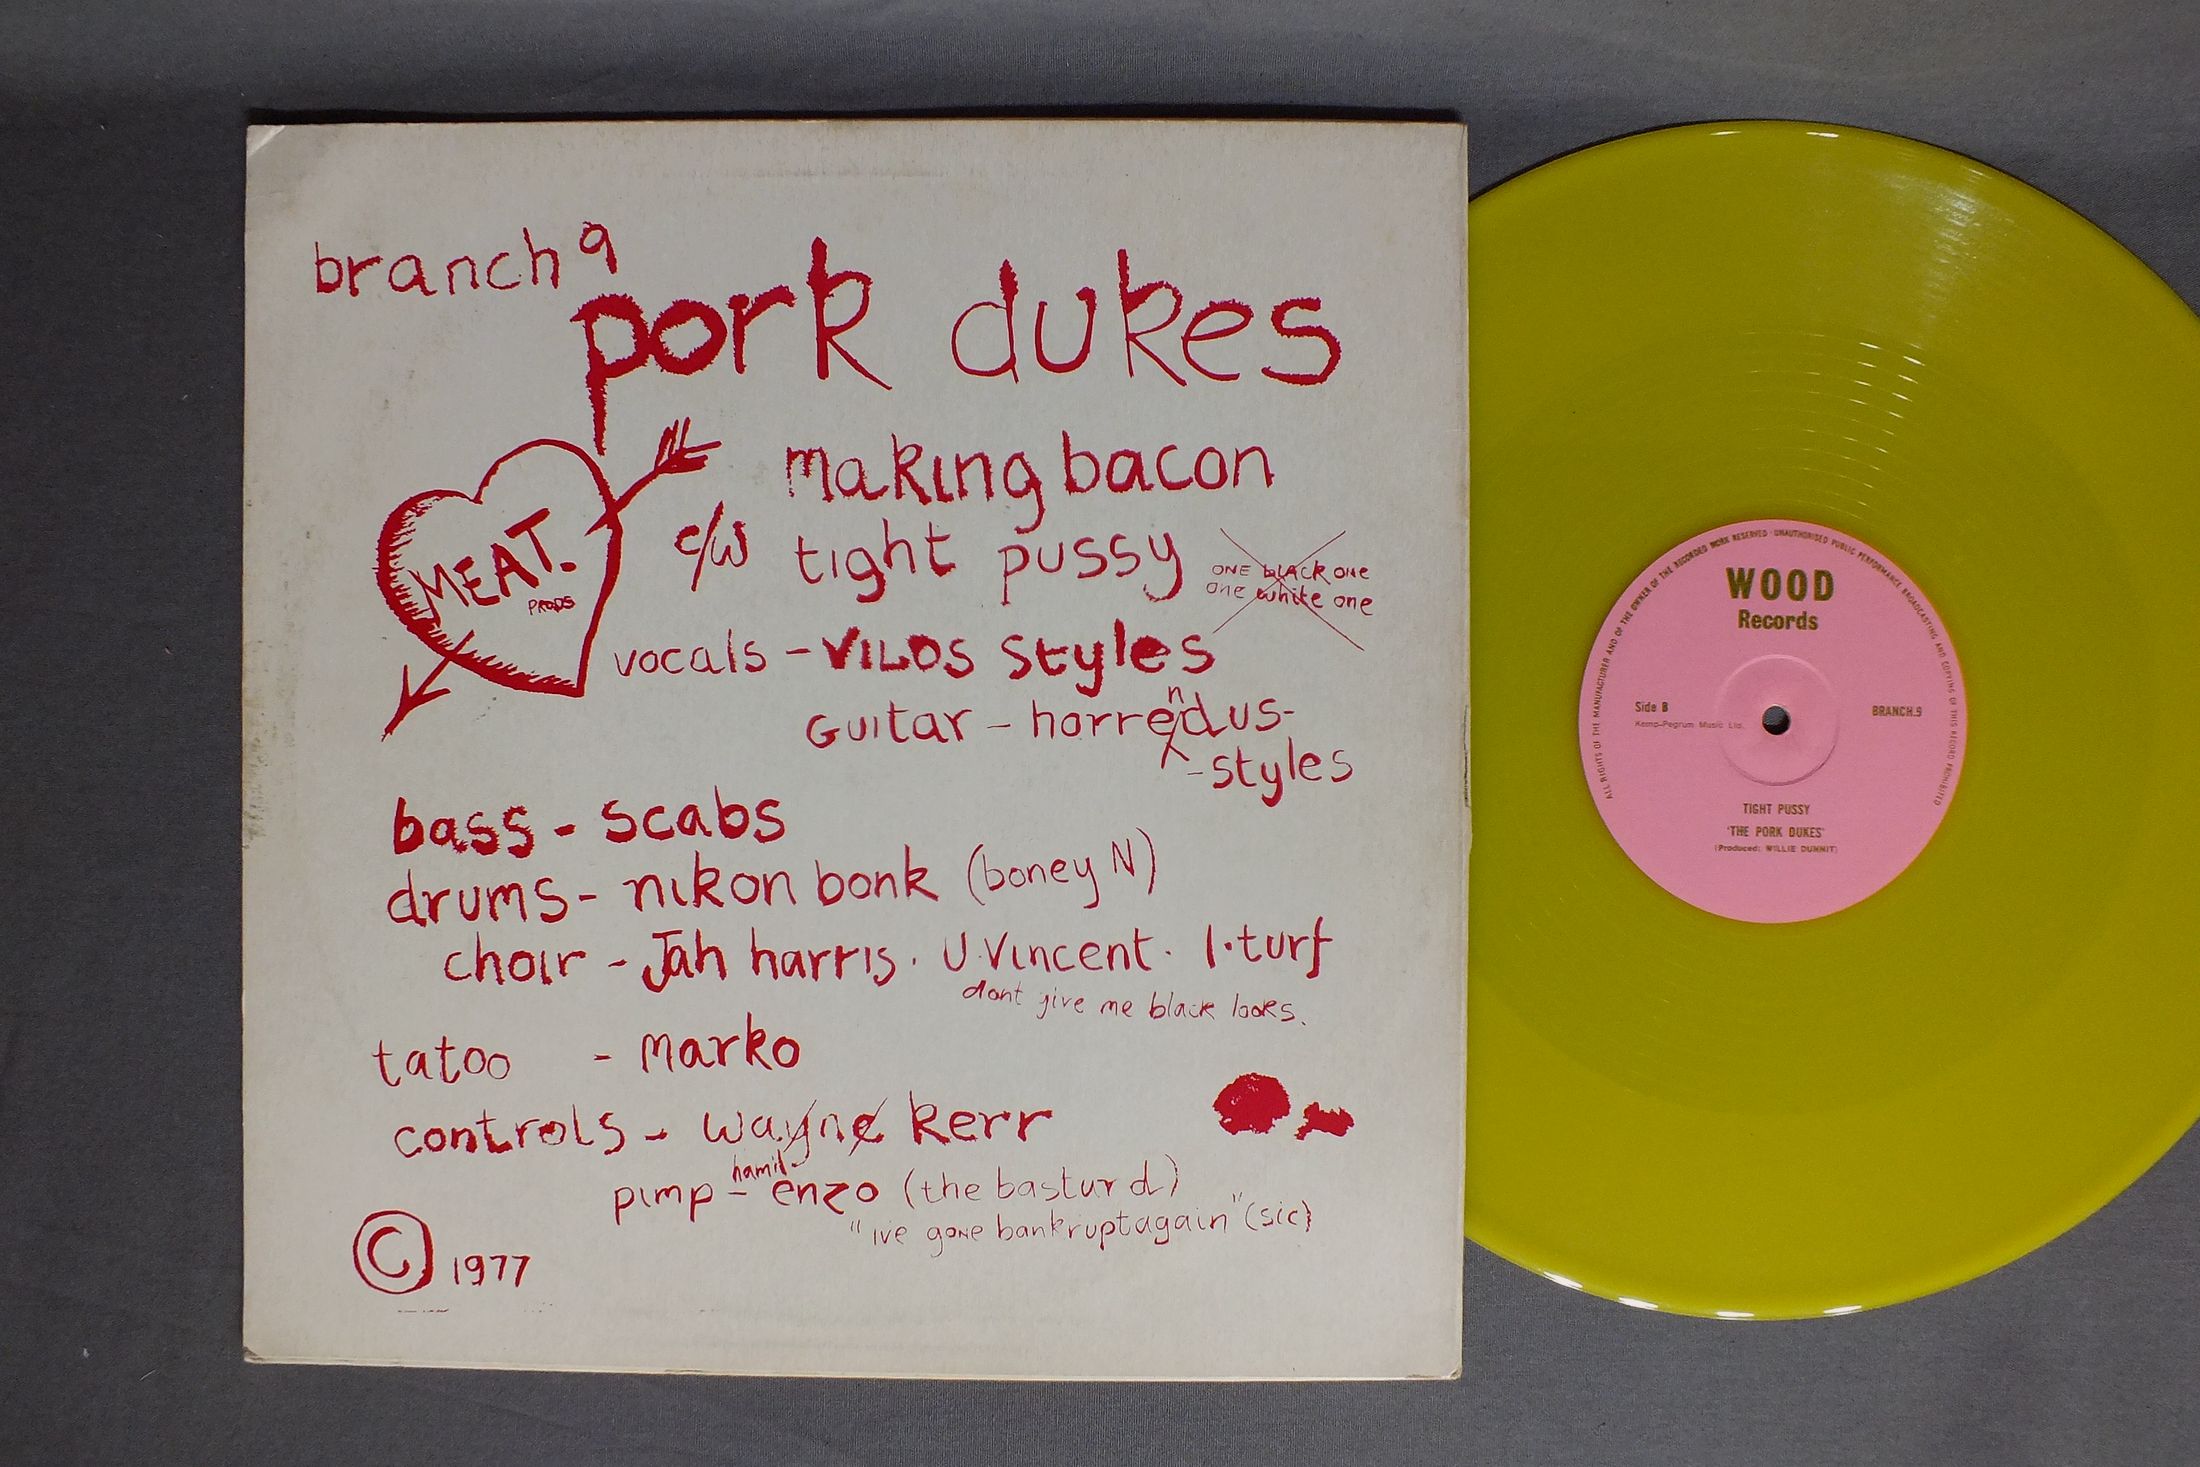 branch 9
pork dukes
making bacon
c/w tight pussy
ONE blACK one
one white one
MEAT.
PRODS
vocals - VILOS Styles
Guitar - horrendus-
-styles
bass - scabs
drums - nikon bonk (boney N)
choir - Jah harris. U.Vincent. I.turf
dont give me black looks.
tatoo - marko
controls - wayne kerr
pimp - hamil- enzo (the basturd)
"ive gone bankruptagain" (sic)
© 1977
ALL RIGHTS OF THE MANUFACTURER AND OF THE OWNER OF THE RECORDED WORK RESERVED · UNAUTHORISED PUBLIC PERFORMANCE BROADCASTING AND COPYING OF THIS RECORD PROHIBITED
WOOD
Records
Side B
Kemp-Pegrum Music Ltd.
BRANCH.9
TIGHT PUSSY
'THE PORK DUKES'
(Produced: WILLIE DUNNIT)